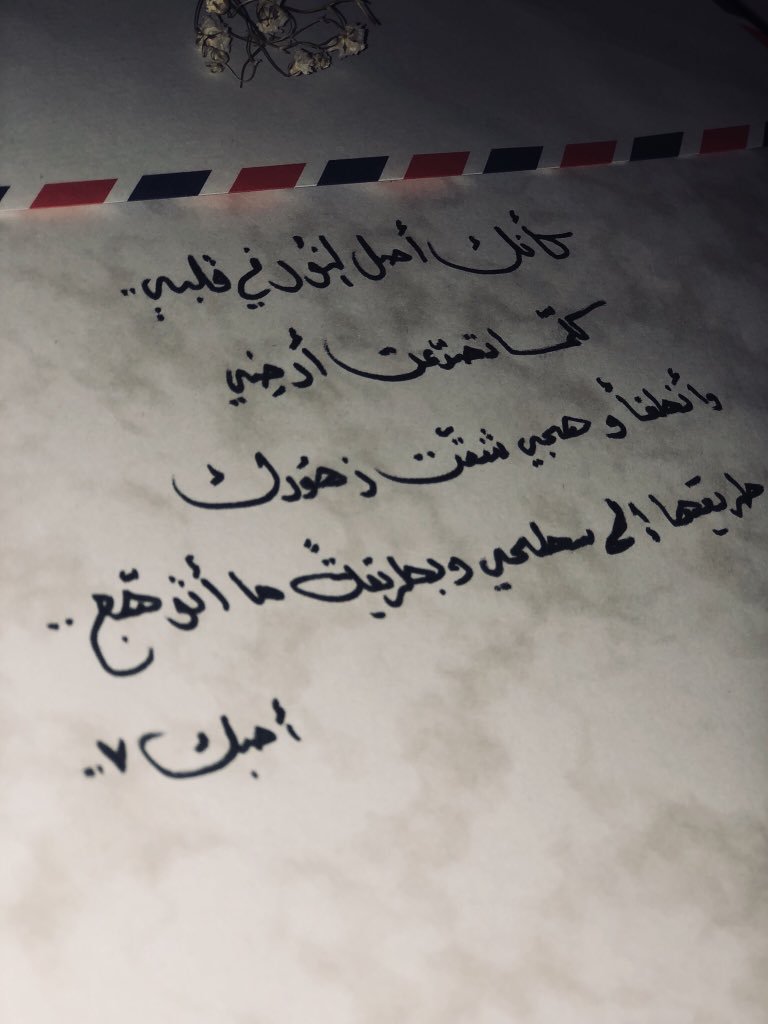 كأنك أصل النؤر في قلبي..
كلّما تصدّعت أرضِي
وأنطفأ وهجي شقّت زهؤرك
طريقها إلى سطحي وبطريقةً ما أتوهّج..
أحبك ٧..